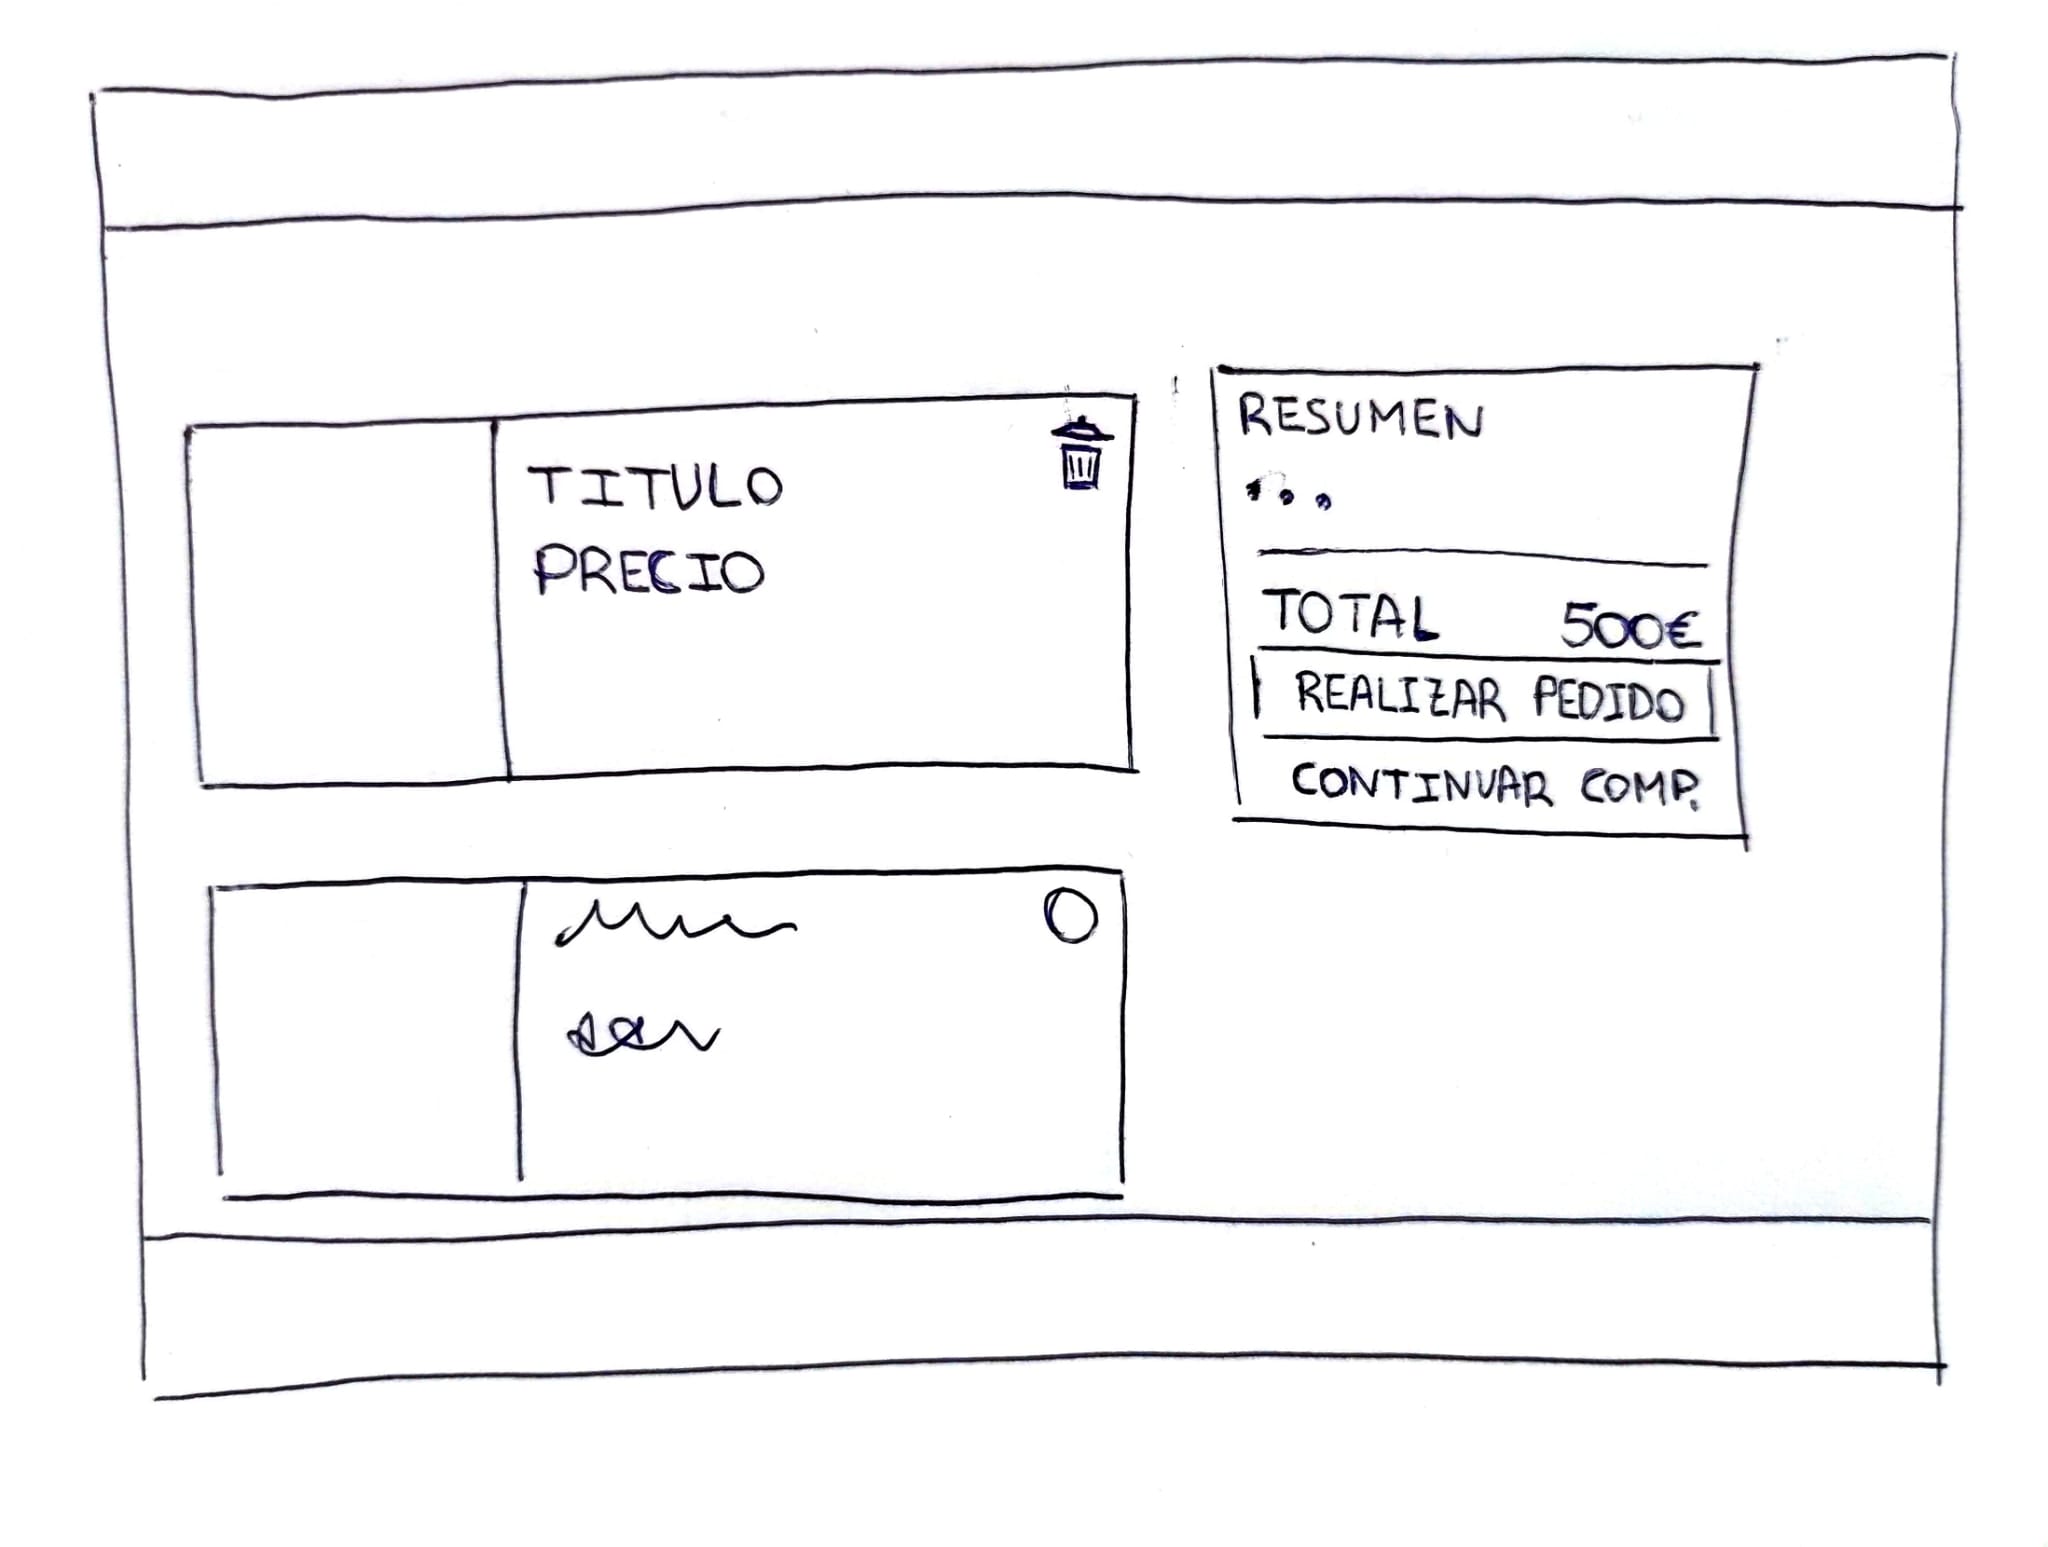 TITULO
PRECIO
RESUMEN
...
TOTAL 500€
REALIZAR PEDIDO
CONTINUAR COMP.